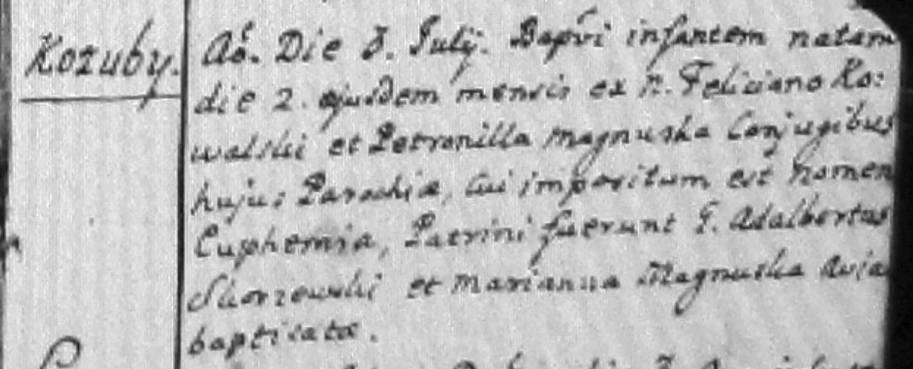 Kozuby.
Ao. Die 3. Julij. Bapvi infantem natam
die 2. ejusdem mensis ex N. Feliciano Ko:
walski et Petronilla Magnuska Conjugibus
hujus Parochiæ, cui impositum est nomen
Euphemia, Patrini fuerunt F. Adalbertus
Skorzewski et Marianna Magnuska avia
baptisatæ.